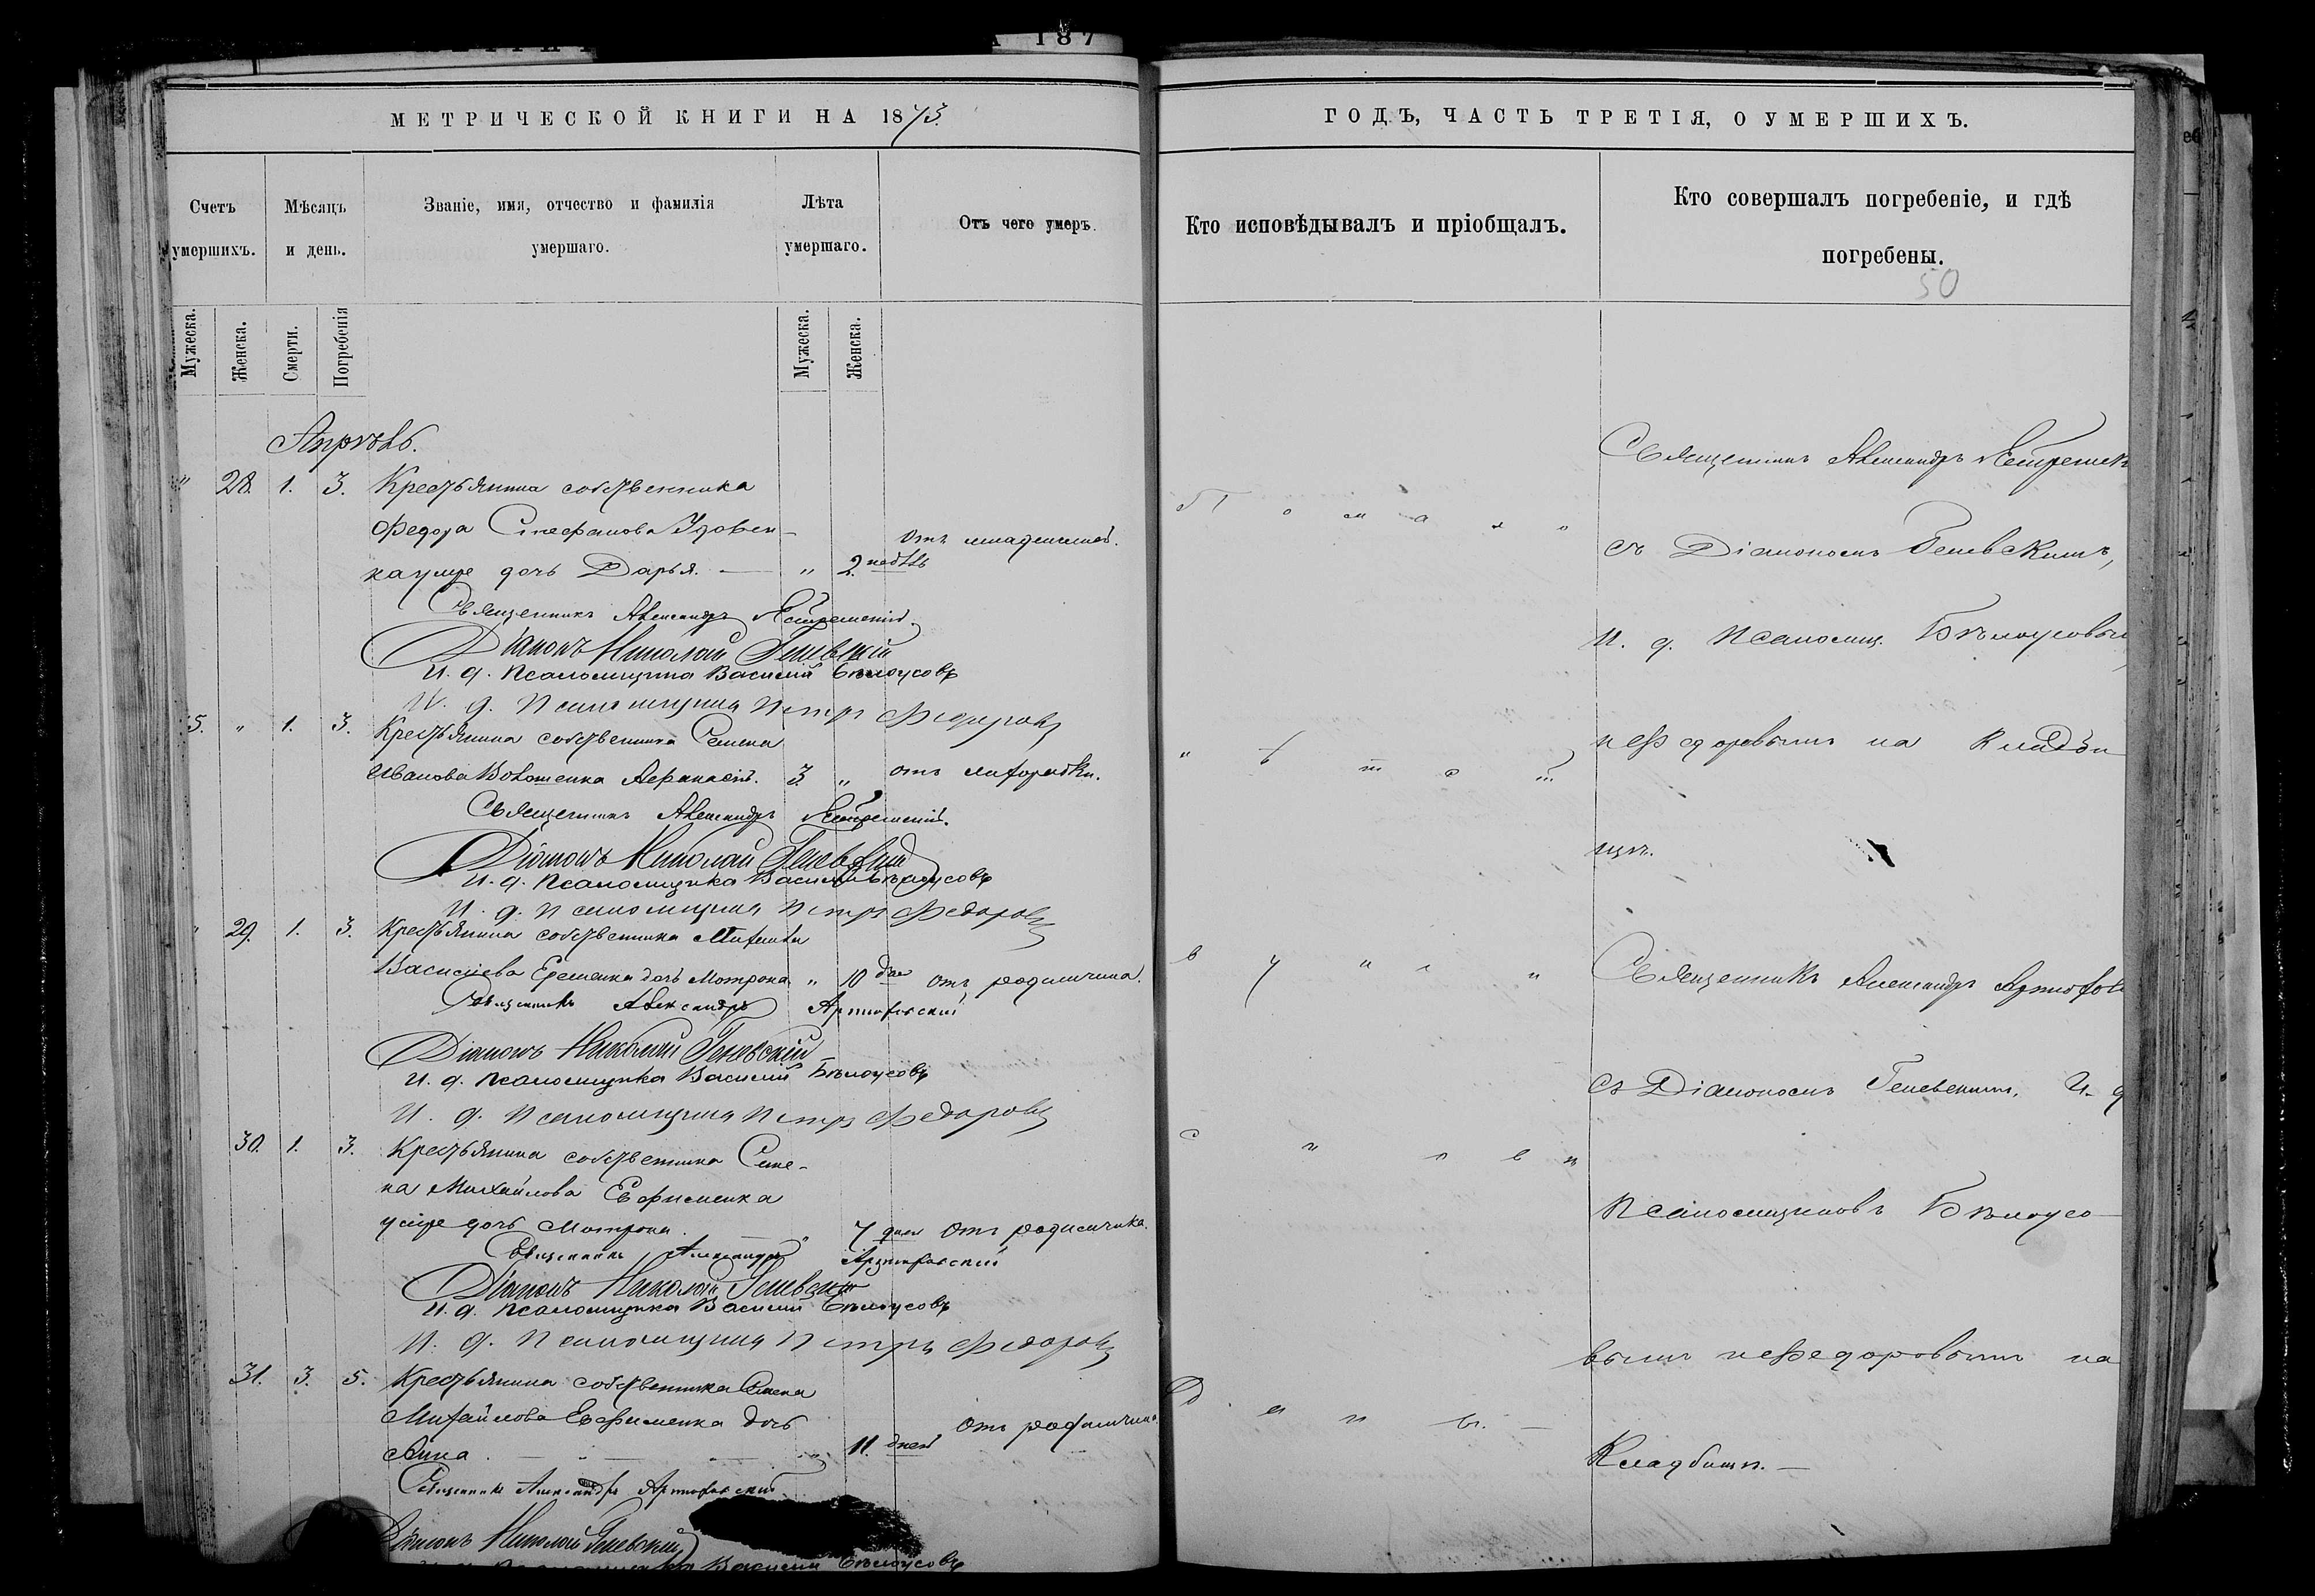 А 187
МЕТРИЧЕСКОЙ КНИГИ НА 1873.
Счетъ умершихъ.
Мѣсяцъ и день.
Званіе, имя, отчество и фамилія умершаго.
Лѣта умершаго.
Отъ чего умеръ.
Мужеска.
Женска.
Смерти.
Погребенія
Мужеска.
Женска.
Апрѣль.
" 28. 1. 3. Крестьянина собственника
Федора Стефанова Удовен-
ка умре дочь Дарья. — " 2. недѣль отъ младенческ.
Священникъ Александръ
Діаконъ Николай Геневскій
И. д. псаломщика Василій Бѣлоусовъ
И. д. псаломщика Петръ Федоровъ
5. " 1. 3. Крестьянина собственника Семена
Иванова Волошенка Афанасій. 3. " отъ лихорадки.
Священникъ Александръ
Діаконъ Николай Геневскій
И. д. псаломщика Василій Бѣлоусовъ
И. д. псаломщика Петръ Федоровъ
" 29. 1. 3. Крестьянина собственника Михаила
Василіева Еременка дочь Мотрона " 10 дней отъ родимчика.
Священникъ Александръ Артюховскій
Діаконъ Николай Геневскій
И. д. псаломщика Василій Бѣлоусовъ
И. д. псаломщика Петръ Федоровъ
30. 1. 3. Крестьянина собственника Семе-
на Михайлова Ефименка
умре дочь Мотрона. — " 7 дней Отъ родимчика.
Священникъ Александръ Артюховскій
Діаконъ Николай Геневскій
И. д. псаломщика Василій Бѣлоусовъ
И. д. псаломщика Петръ Федоровъ
31. 3. 5. Крестьянина собственника Семена
Михайлова Ефименка дочь
Анна. — " 11. дней Отъ родимчика
Священникъ Александръ Артюховскій
Діаконъ Николай Геневскій
И. д. псаломщика Василій Бѣлоусовъ
ГОДЪ, ЧАСТЬ ТРЕТІЯ, О УМЕРШИХЪ.
Кто исповѣдывалъ и пріобщалъ.
Кто совершалъ погребеніе, и гдѣ погребены.
50
Священникъ Александръ
съ Діакономъ Геневскимъ,
И. д. псаломщ. Бѣлоусовым
и Федоровымъ на кладби-
щѣ.
Священникъ Александръ Артюхов
съ Діакономъ Геневскимъ, И. д
псаломщиковъ Бѣлоусо-
вымъ и Федоровымъ на
Кладбищѣ. —